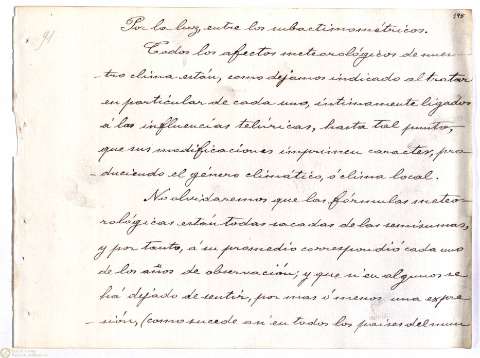 91
Por la luz, entre los subactinométricos.
Todos los afectos meteorológicos de nues-
-tro clima están, como dejamos indicado al tratar
en particular de cada uno, íntimamente ligados
á las influencias telúricas, hasta tal punto,
que sus modificaciones imprimen caracter, pro-
-duciendo el género climático, ó clima local.
No olvidaremos que las fórmulas meteo-
rológicas están todas sacadas de las semisumas,
y por tanto, á su promedio correspondió cada uno
de los años de observación; y que si en algunos se
há dejado de sentir, por mas ó menos una expre-
-sión, (como sucede asi en todos los paises del mun